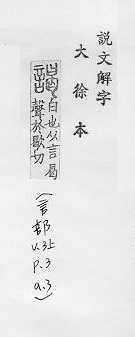 説文解字
大徐本
謁 白也从言曷
聲於歇切
(言部
V.3上
P.3
a.3)